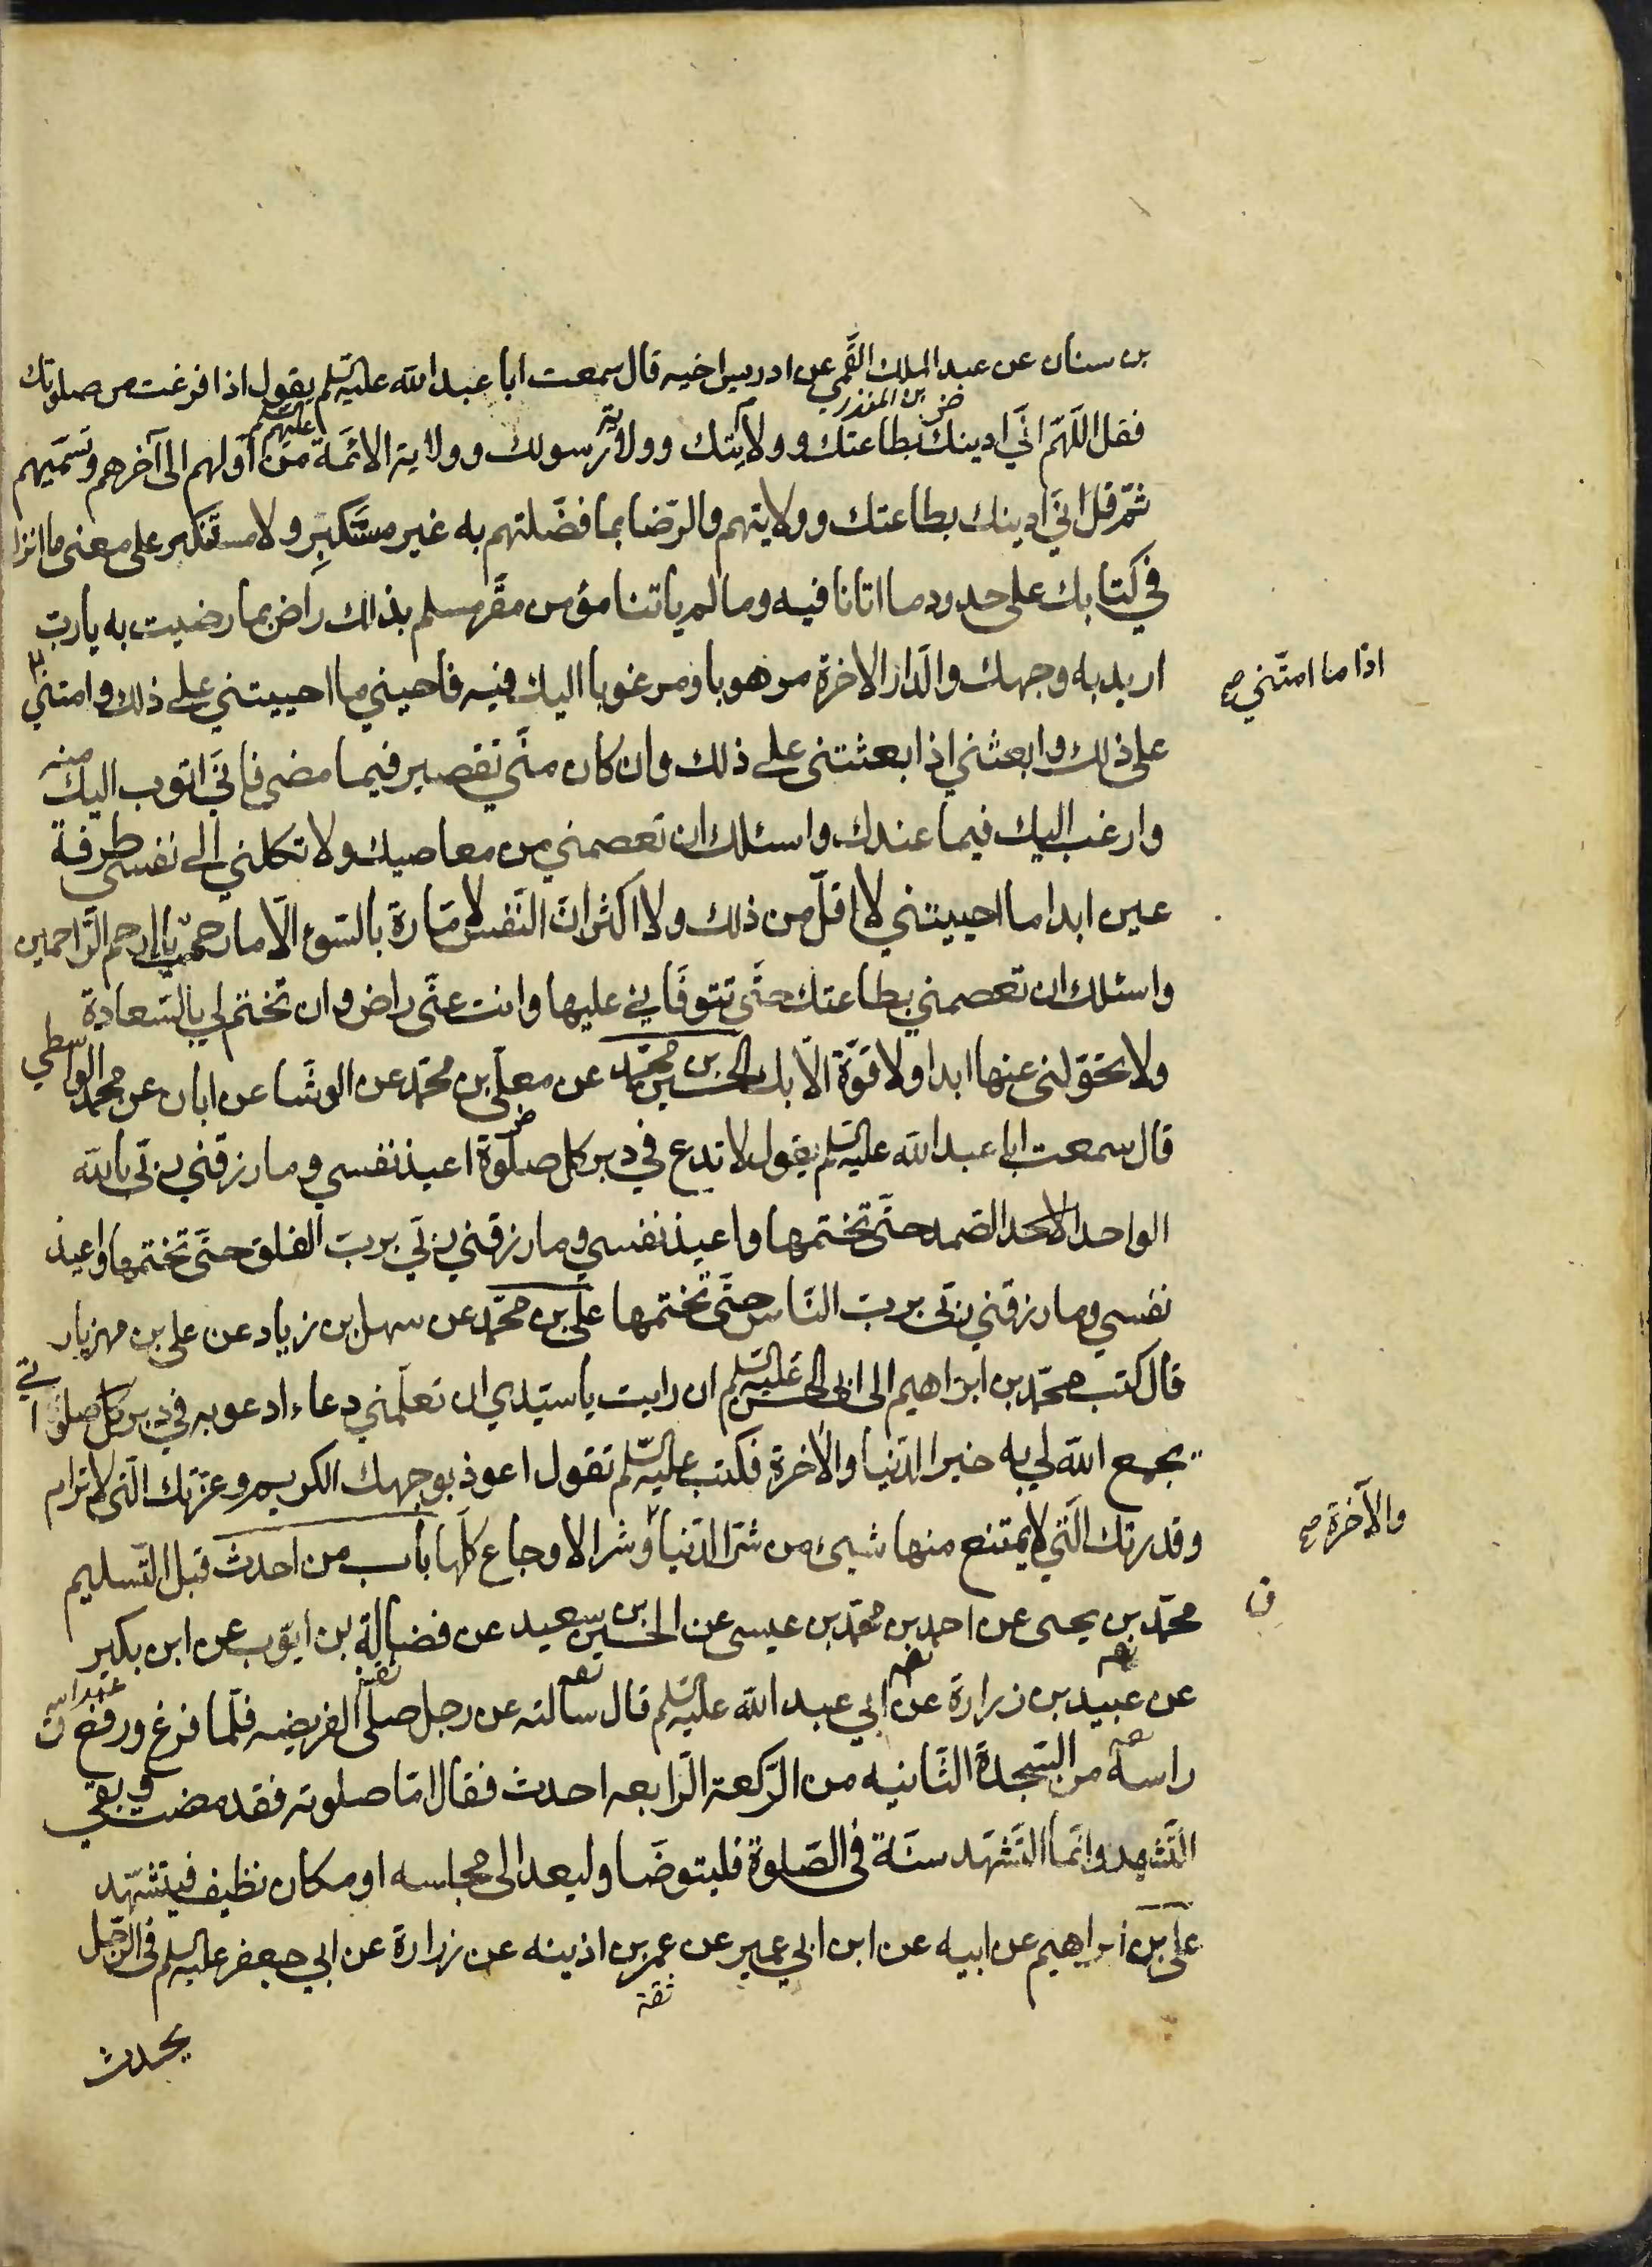 بن سنان عن عبد الملك القمي عن ادريس اخيه قال سمعت ابا عبد الله عليه السلم يقول اذا فرغت من صلوتك
فقل اللهم اني ادينك بطاعتك وولايتك وولاية رسولك وولاية الائمة عليهم السلم من اولهم الى آخرهم وتسميهم
ثم قل اني ادينك بطاعتك وولايتهم والرضا بما فضلتهم به غير متكبر ولا مستنكبر على معنى ما انزلت
في كتابك على حدود ما اتانا فيه وما لم ياتنا مؤمن مقر مسلم بذلك راض بما رضيت به يا رب
اريد به وجهك والدار الاخرة مرهوبا ومرغوبا اليك فيه فاحيني ما احييتني على ذلك وامتني
اذا ما امتني صح
على ذلك وابعثني اذا بعثتني على ذلك وان كان مني تقصير فيما مضى فاني اتوب اليك منه
وارغب اليك فيما عندك واسئلك ان تعصمني من معاصيك ولا تكلني الى نفسي طرفة
عين ابدا ما احييتني لا اقل من ذلك ولا اكثر ان النفس لامارة بالسوء الا ما رحمت يا ارحم الراحمين
واسئلك ان تعصمني بطاعتك حتى تتوفاني عليها وانت عني راض وان تختم لي بالسعادة
ولا تحولني عنها ابدا ولا قوة الا بك الحسين بن محمد عن معلى بن محمد عن الوشا عن ابان عن محمد الواسطي
قال سمعت ابا عبد الله عليه السلم يقول لا تدع في دبر كل صلوة اعيذ نفسي وما رزقني ربي بالله
الواحد الاحد الصمد حتى تختمها واعيذ نفسي وما رزقني ربي برب الفلق حتى تختمها واعيذ
نفسي وما رزقني ربي برب الناس حتى تختمها علي بن محمد عن سهل بن زياد عن علي بن مهزيار
قال كتب محمد بن ابراهيم الى ابي الحسن عليه السلم ان رايت يا سيدي ان تعلمني دعاء ادعو به في دبر كل صلواتي
يجمع الله لي به خير الدنيا والاخرة فكتب عليه السلم تقول اعوذ بوجهك الكريم وعزتك التي لا ترام
وقدرتك التي لا يمتنع منها شيئ من شر الدنيا وشر الاوجاع كلها باب من احدث قبل التسليم
والآخرة صح
محمد بن يحيى عن احمد بن محمد بن عيسى عن الحسين بن سعيد عن فضالة بن ايوب عن ابن بكير
عن عبيد بن زرارة عن ابي عبد الله عليه السلم قال سالته عن رجل صلى الفريضه فلما فرغ ورفع
راسه من السجدة الثانيه من الركعة الرابعه احدث فقال اما صلوته فقد مضت وبقي
التشهد وانما التشهد سنة في الصلوة فليتوضا وليعد الى مجلسه او مكان نظيف فيتشهد
علي بن ابراهيم عن ابيه عن ابن ابي عمير عن عمر بن اذينه عن زرارة عن ابي جعفر عليه السلم في الرجل
ثقة
يحدث